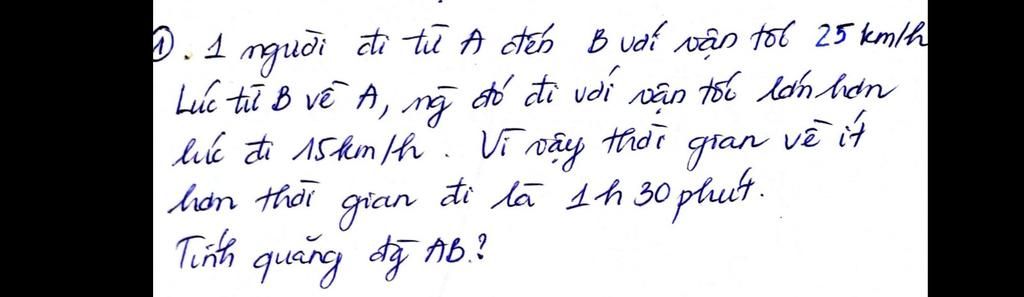 ①. 1 người đi từ A đến B với vận tốc 25 km/h
Lúc từ B về A, ng̅ đó đi với vận tốc lớn hơn
lúc đi 15km/h. Vì vậy thời gian về ít
hơn thời gian đi là 1h 30 phút.
Tính quãng đg̅ AB.?